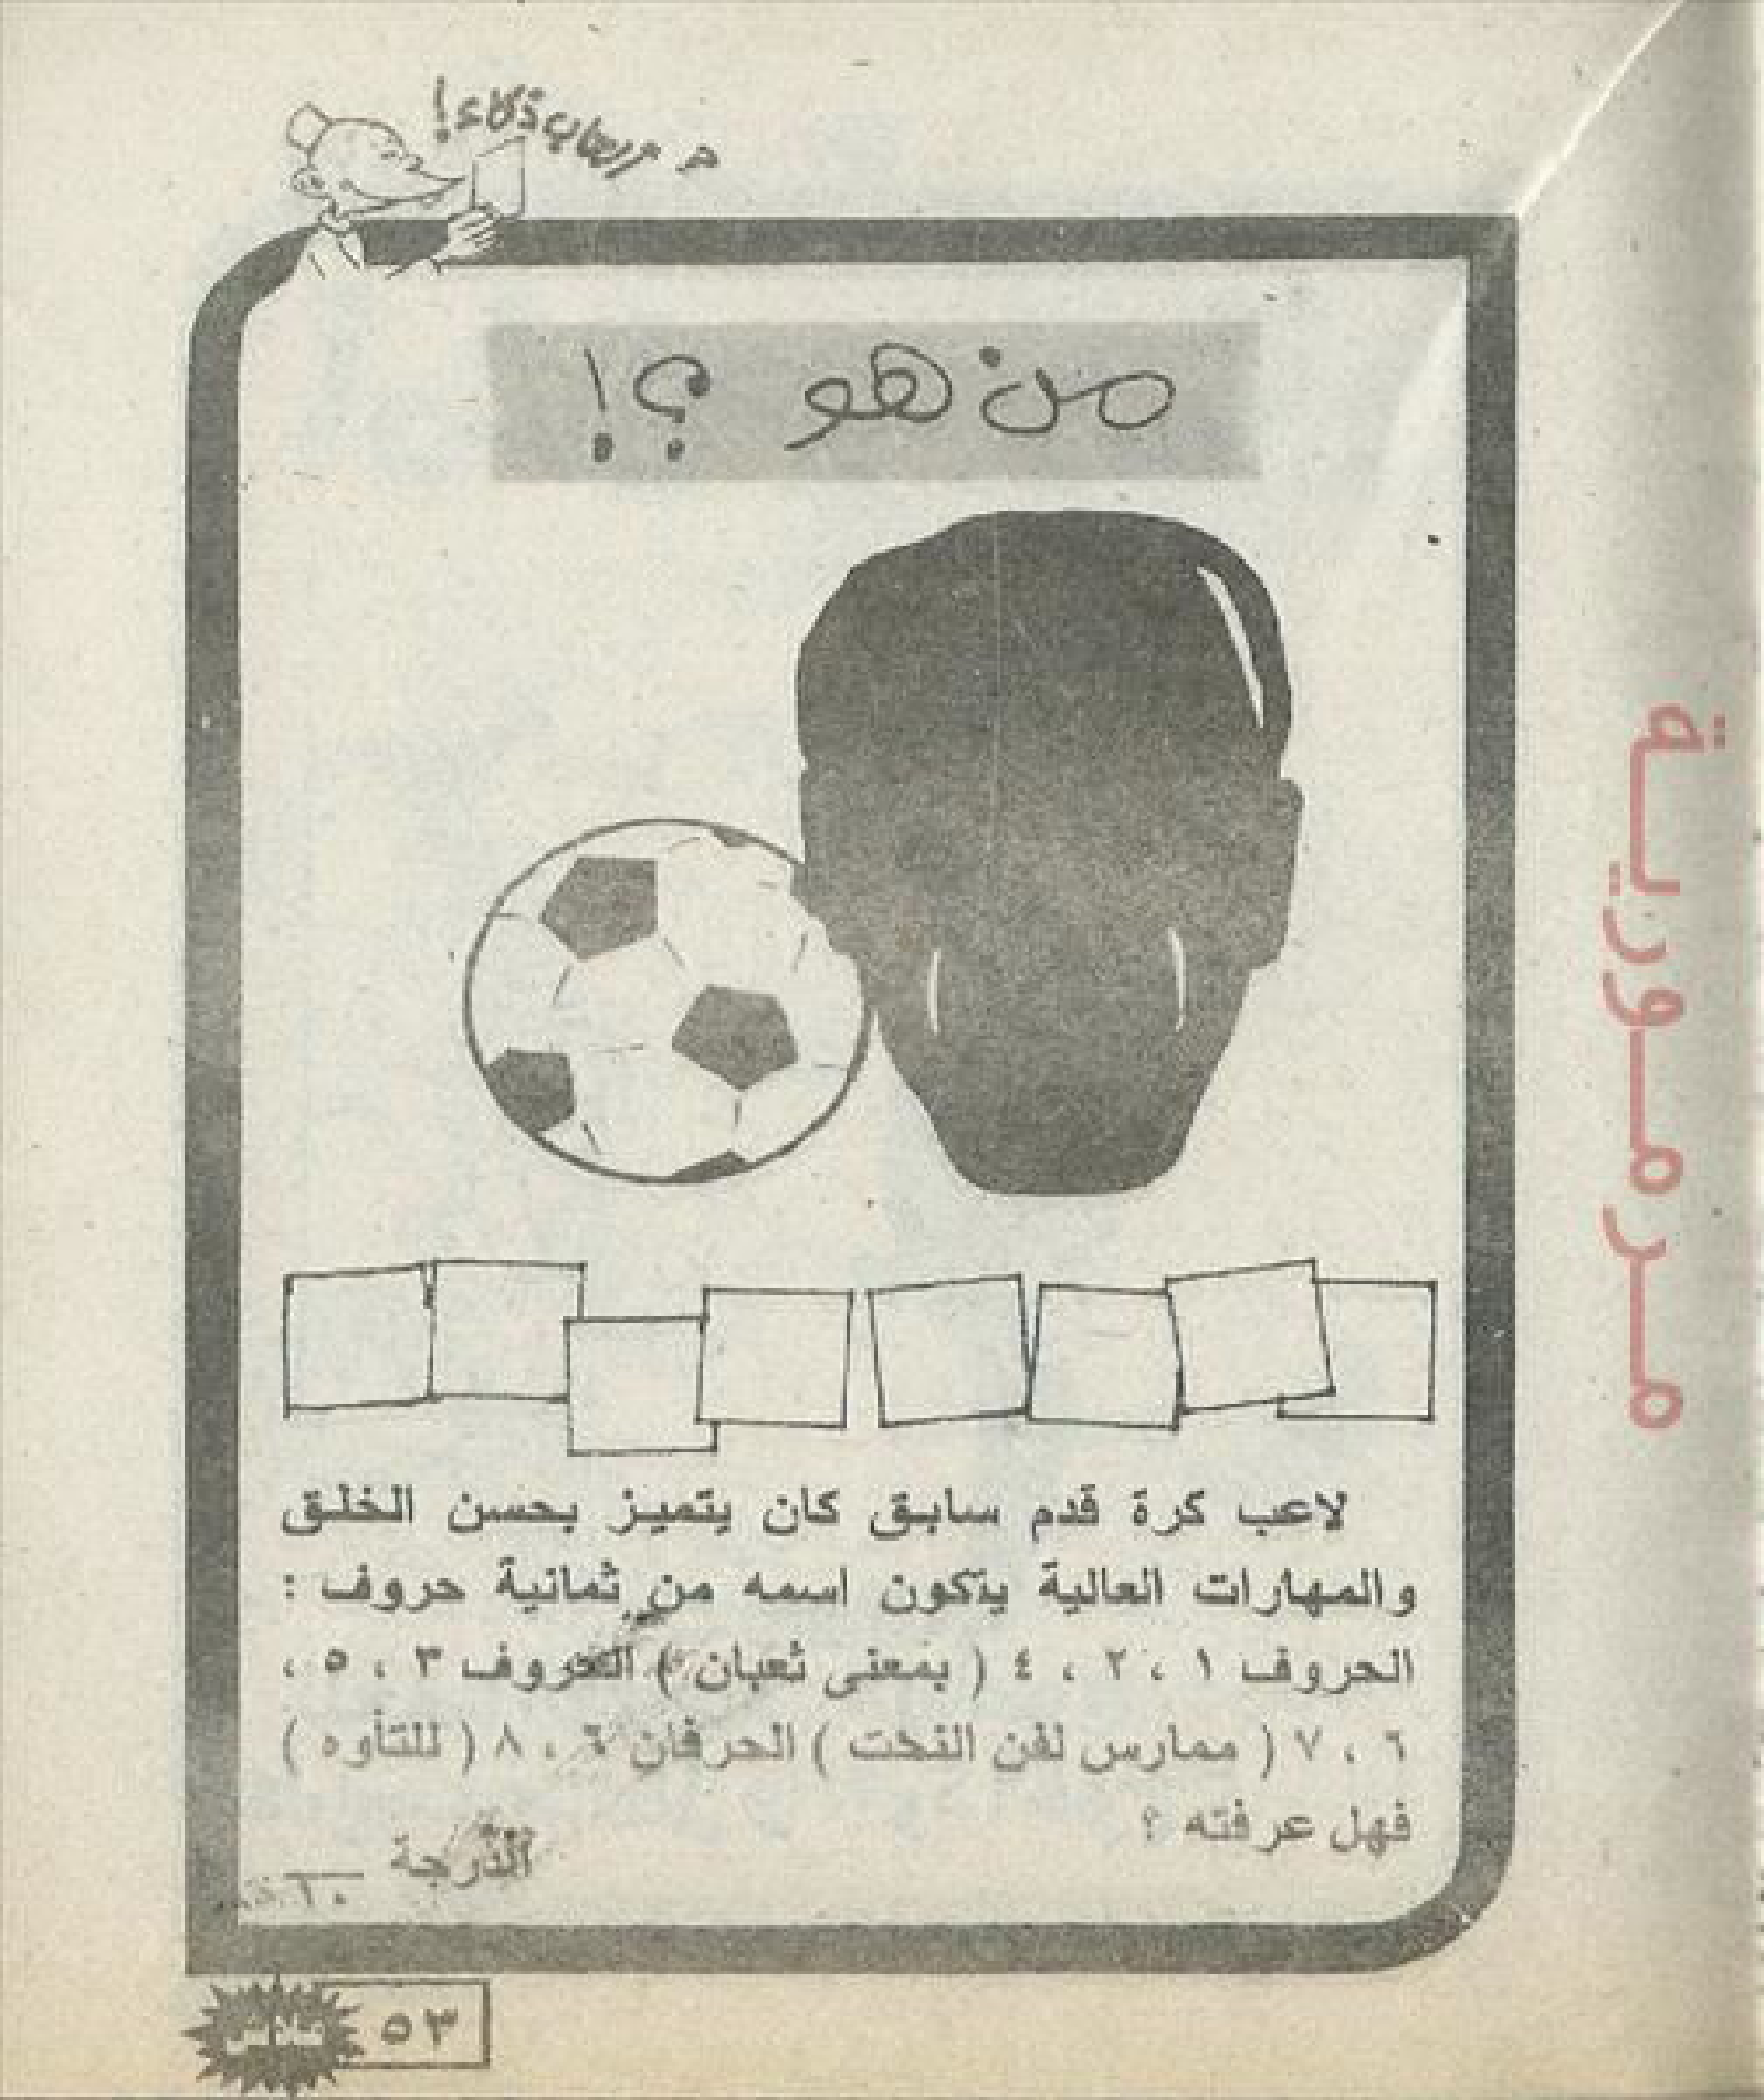 ألعاب ذكاء!
من هو ؟!
لاعب كرة قدم سابق كان يتميز بحسن الخلق
والمهارات العالية يتكون اسمه من ثمانية حروف :
الحروف ١ ، ٢ ، ٤ ( بمعنى ثعبان ) الحروف ٣ ، ٥ ،
٦ ، ٧ ( ممارس لفن النحت ) الحرفان ٦ ، ٨ ( للتأوه )
فهل عرفته ؟
الدرجة
١٠
٥٣
مـرمـوريـة